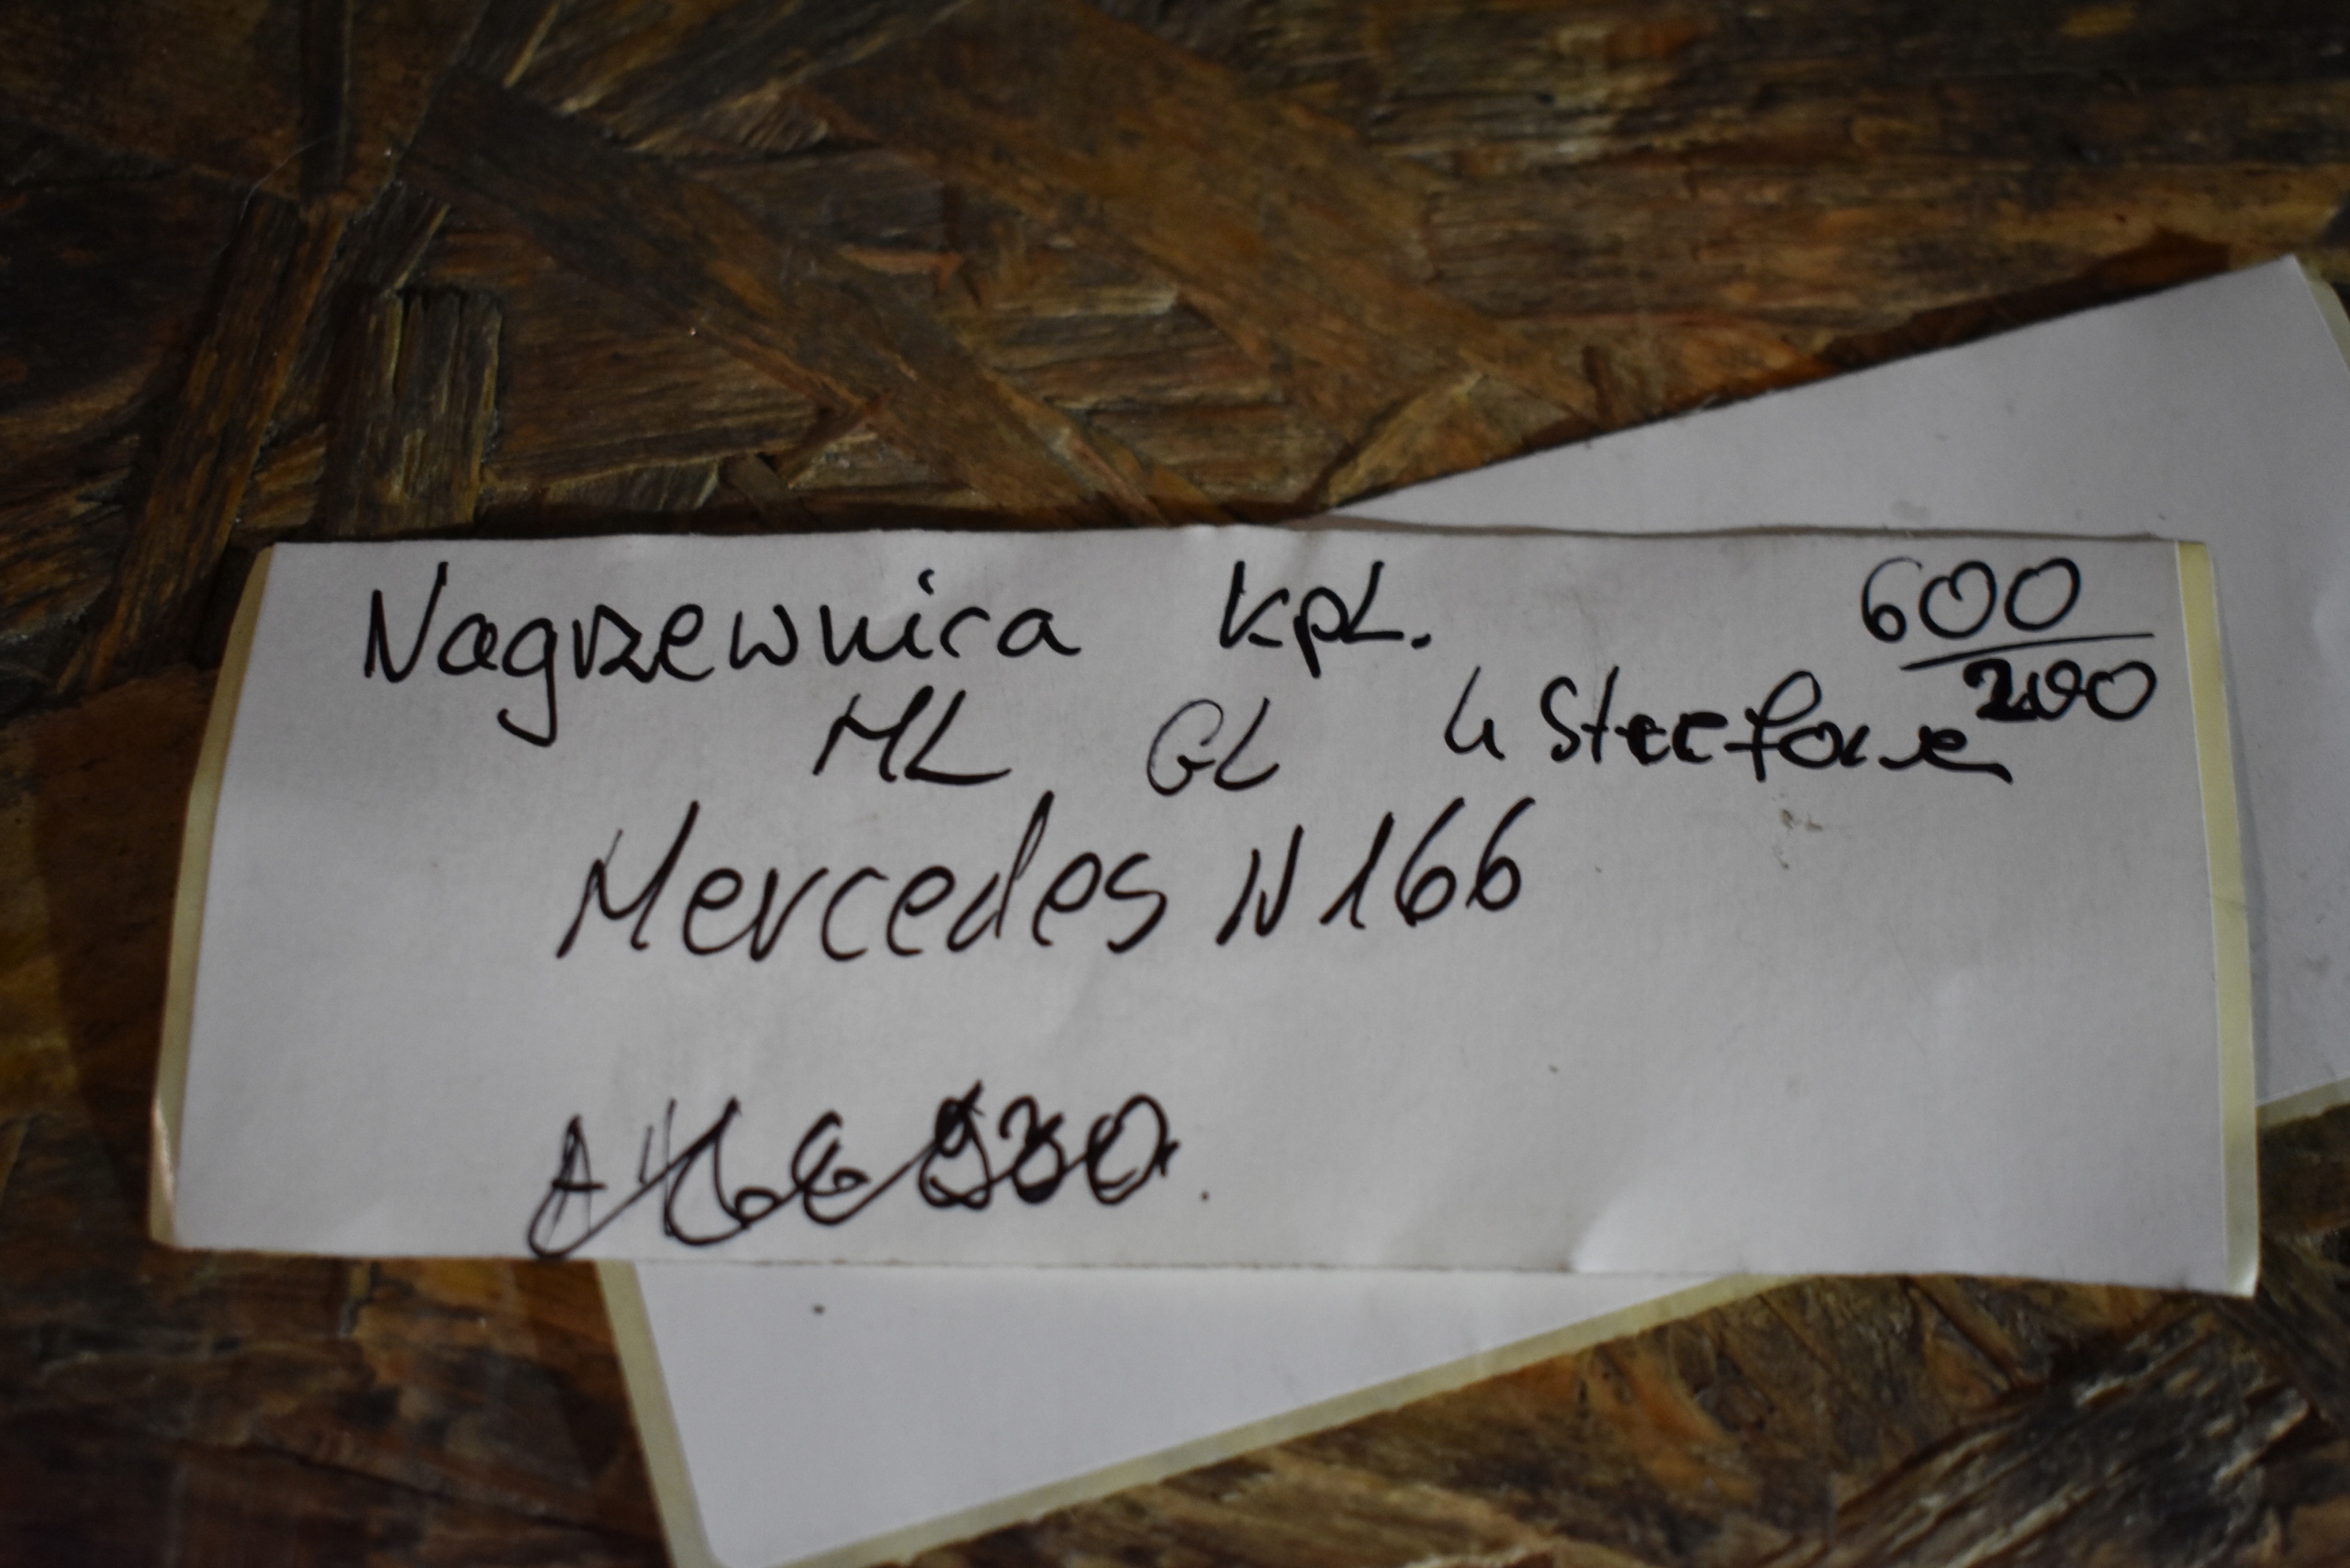 Nagrzewnica kpL. 600
200
ML GL 4 Strefowe
Mercedes W166